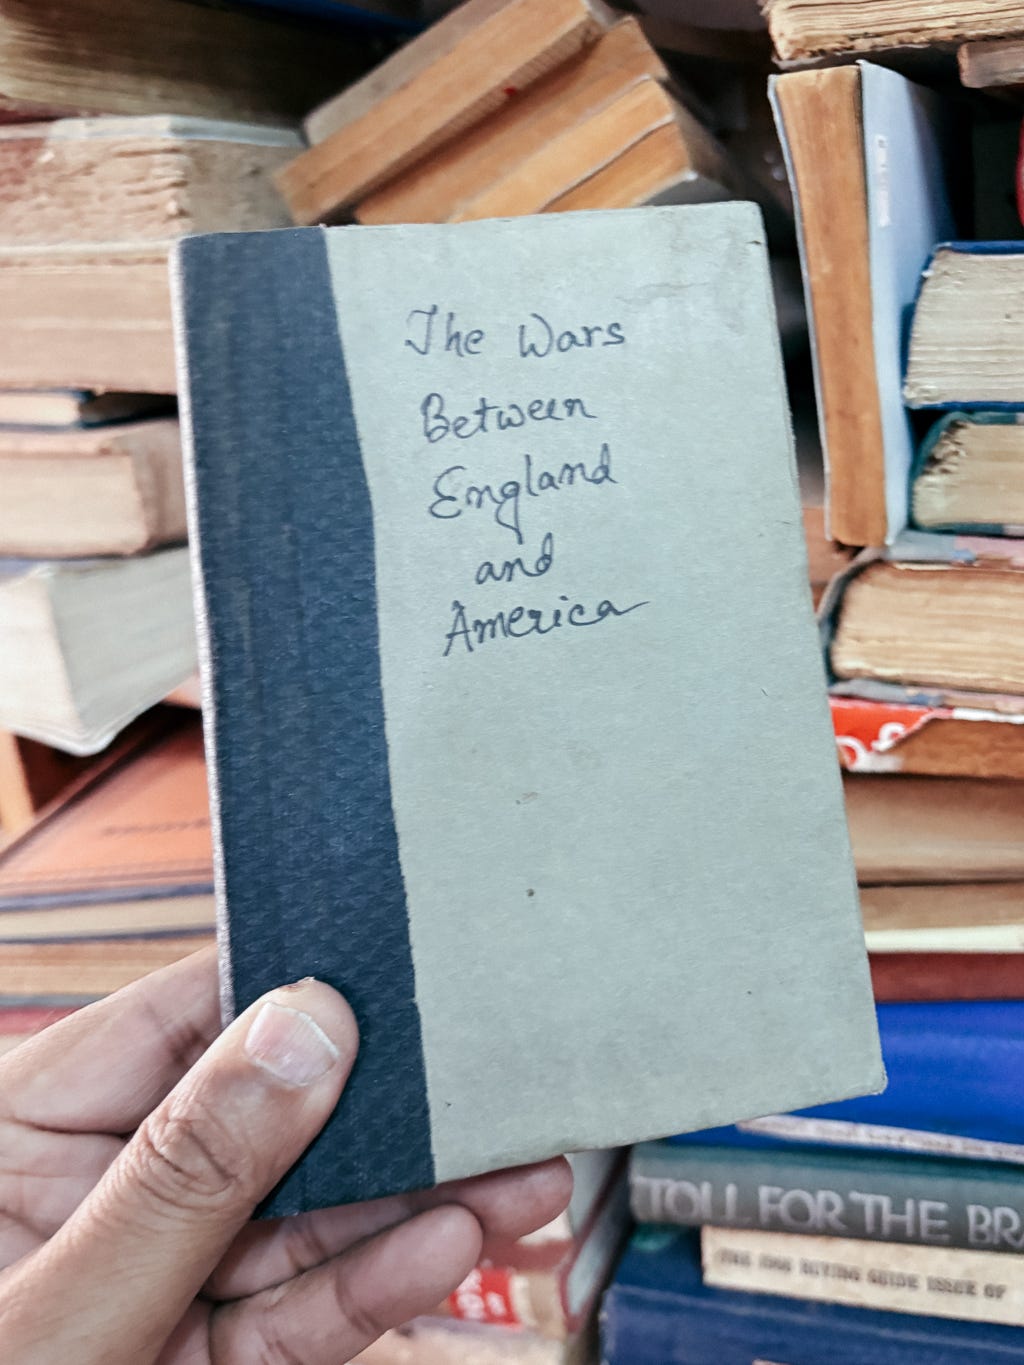 The Wars
Between
England
and
America
TOLL FOR THE BRA
THE 1966 BUYING GUIDE ISSUE OF
of